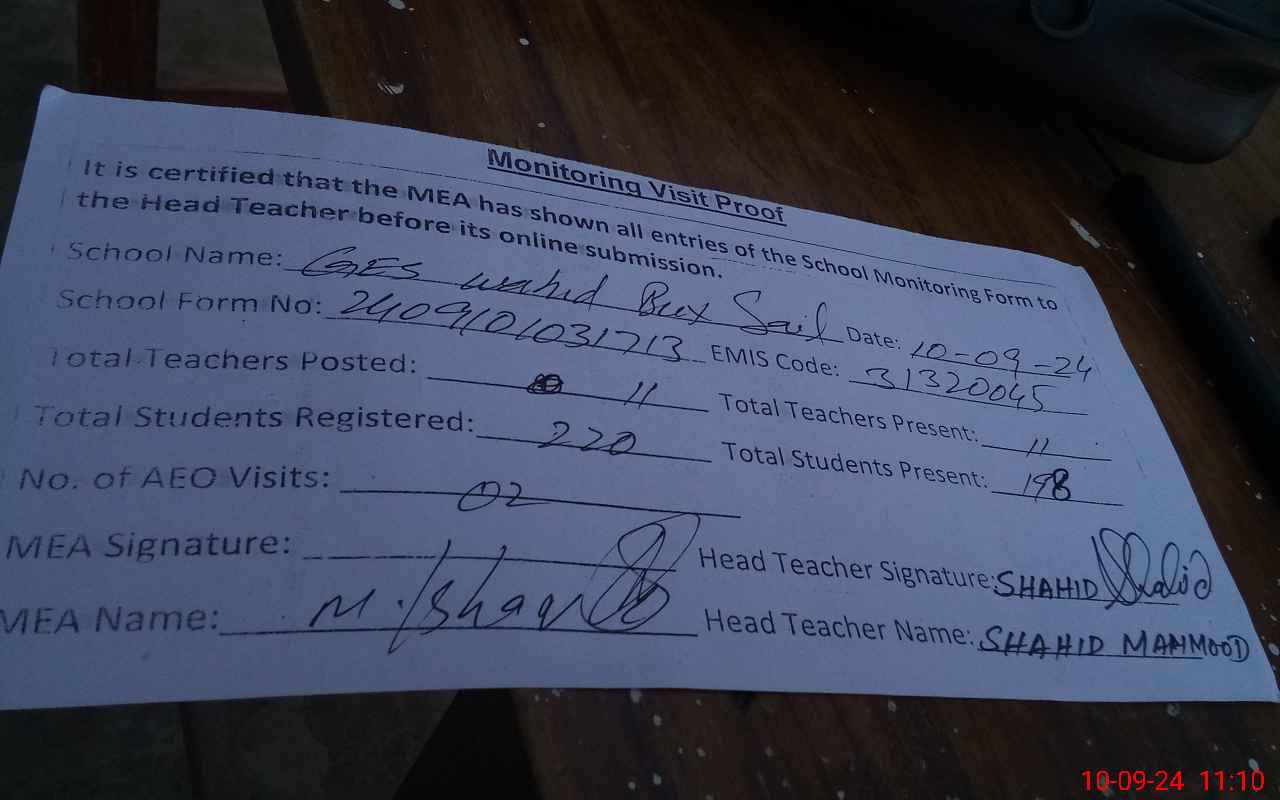 Monitoring Visit Proof
It is certified that the MEA has shown all entries of the School Monitoring Form to
the Head Teacher before its online submission.
School Name: GES wahid Bux Sail Date: 10-09-24
School Form No: 2409101031713 EMIS Code: 31320045
Total Teachers Posted: 11 Total Teachers Present: 11
Total Students Registered: 220 Total Students Present: 198
No. of AEO Visits: 02
MEA Signature: Head Teacher Signature: SHAHID Shahid
MEA Name: M. Ishaq Head Teacher Name: SHAHID MAHMOOD
10-09-24 11:10